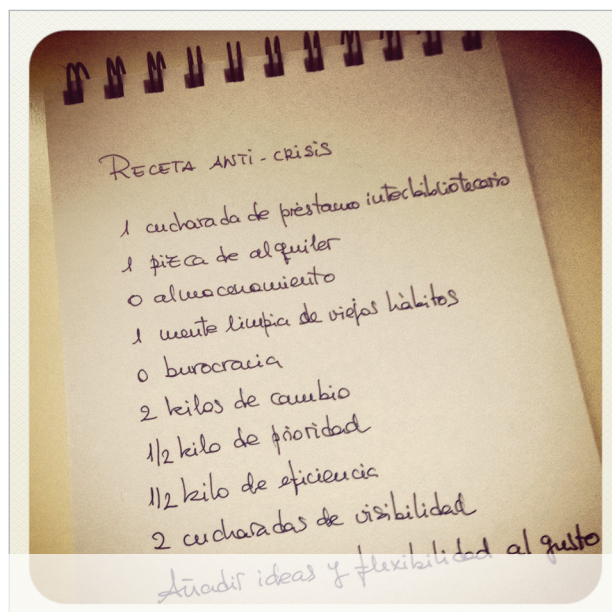 RECETA ANTI-CRISIS
1 cucharada de préstamo interbibliotecario
1 pizca de alquiler
0 almacenamiento
1 mente limpia de viejos hàbitos
0 burocracia
2 kilos de cambio
1/2 kilo de prioridad
1/2 kilo de eficiencia
2 cucharadas de visibilidad
Añadir ideas y flexibilidad al gusto